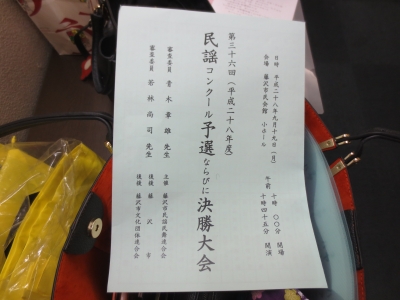 日時 平成二十八年九月十九日(月) 午前 十時 〇〇分 開場
十時四十五分 開演
会場 藤沢市民会館 小ホール
第三十六回(平成二十八年度)
民謡コンクール予選ならびに決勝大会
審査委員 青木章雄先生 主催 藤沢市民謡民舞連合会
審査委員 若林尚司先生 後援 藤沢市
後援 藤沢市文化団体連合会